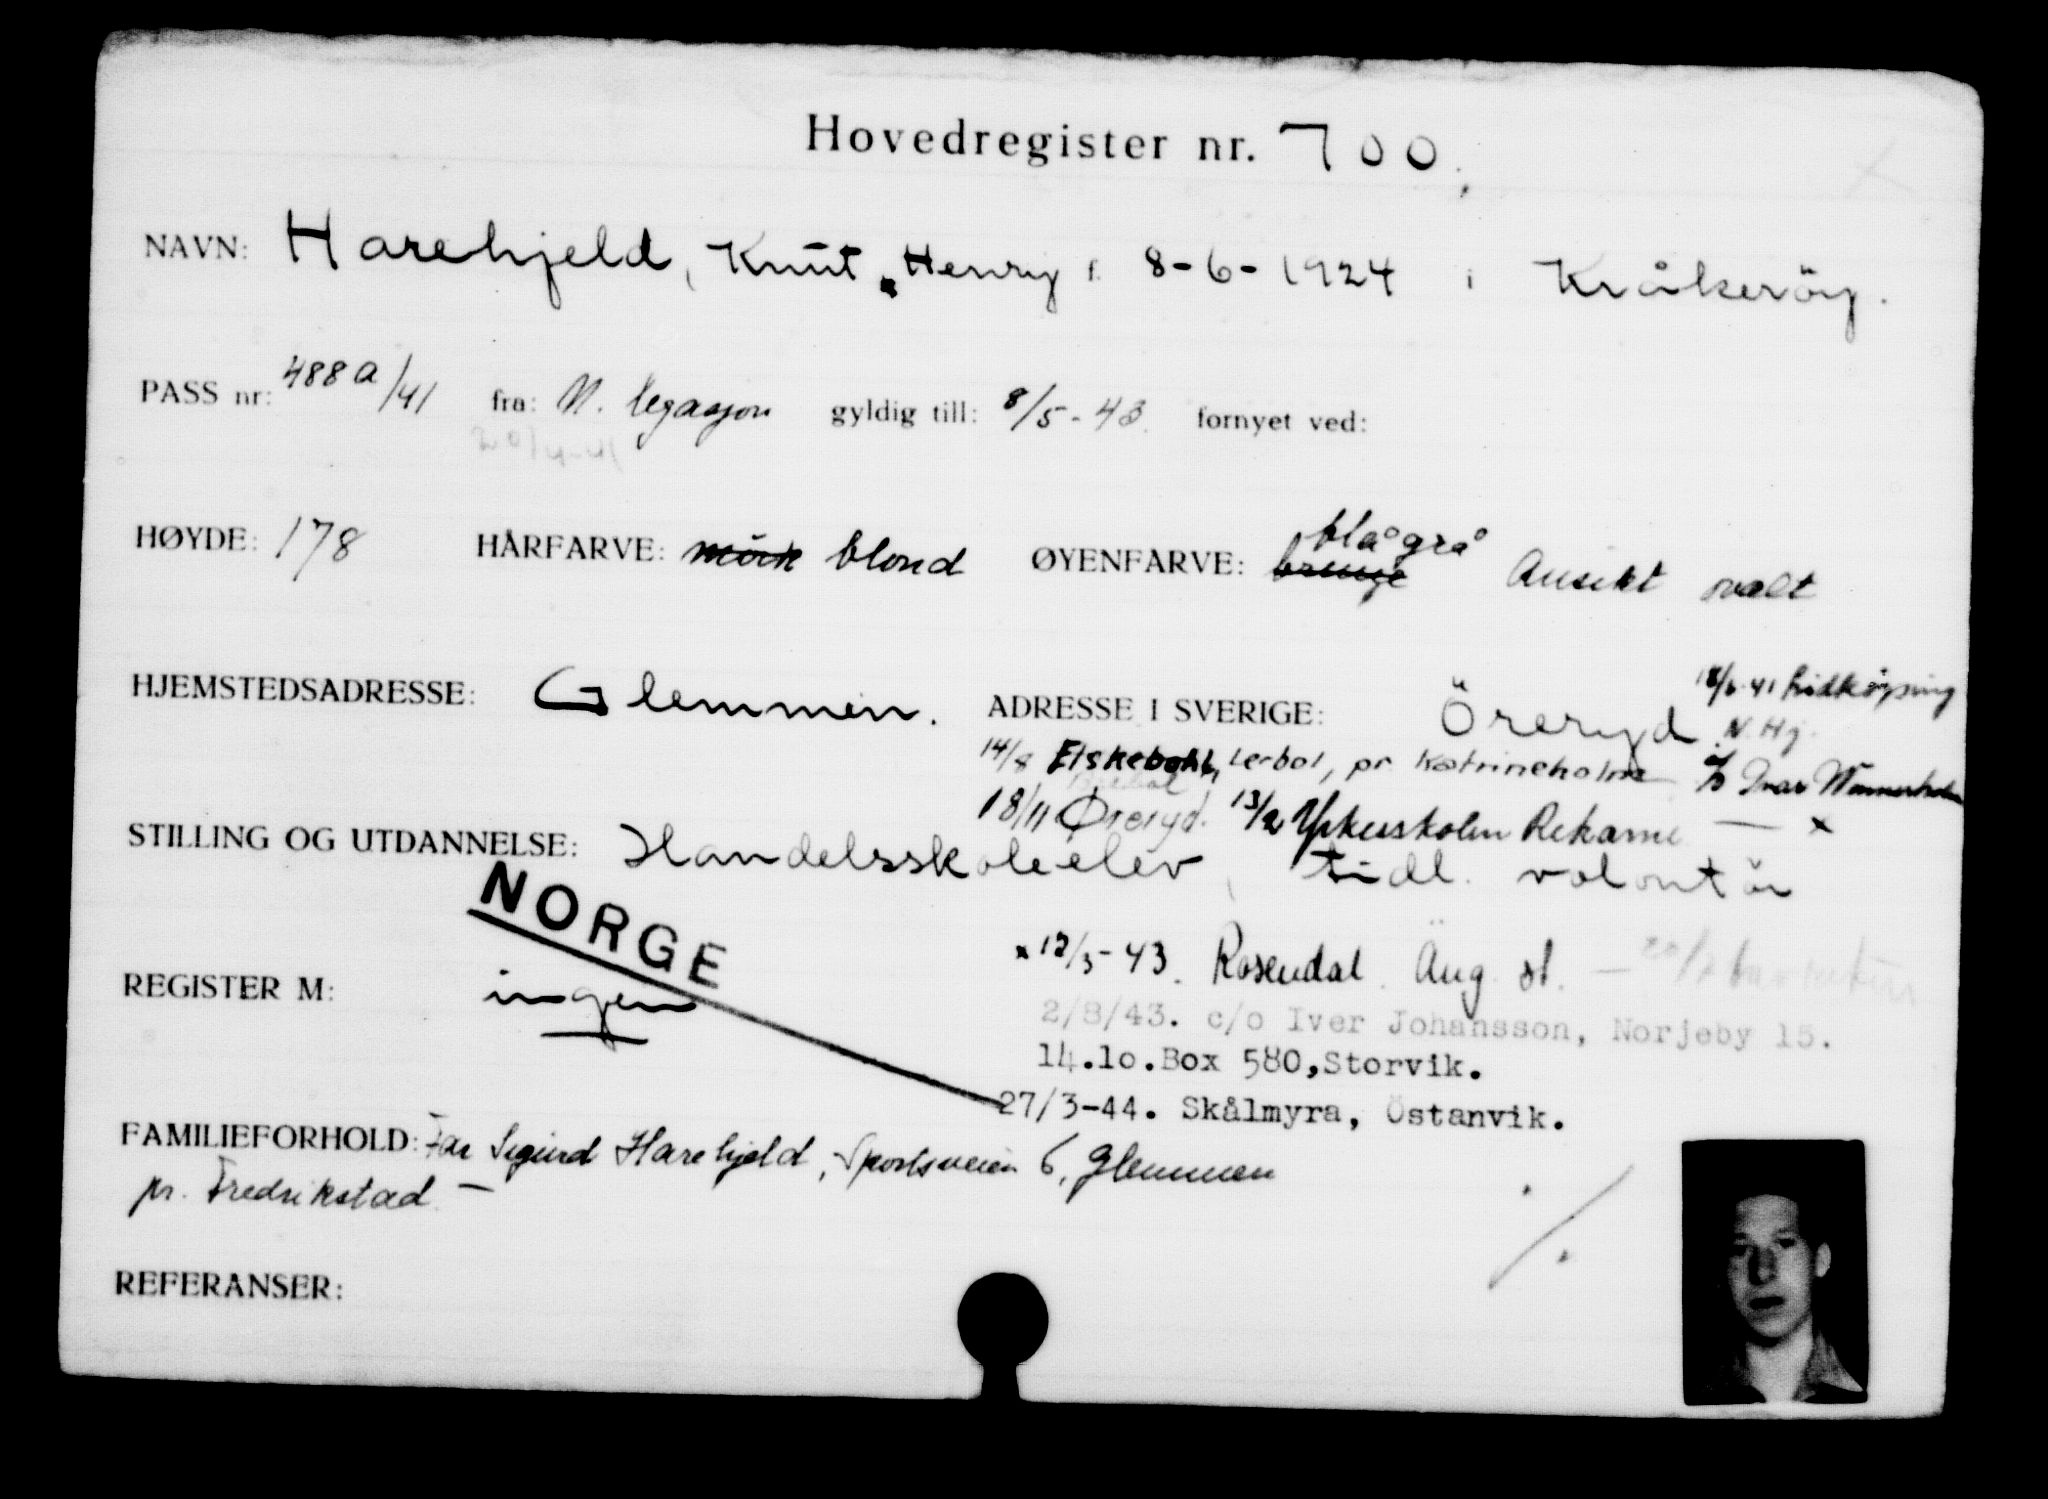 Hovedregister nr. 700.
NAVN: Harehjeld, Knut Henry f. 8-6-1924 i Kråkeröy.
PASS nr: 488a/41 fra: N. legasjon gyldig till: 8/5-43. fornyet ved:
20/4-41
HØYDE: 178 HÅRFARVE: mörk blond ØYENFARVE: brune blågrå Ansikt ovalt
HJEMSTEDSADRESSE: Glemmen. ADRESSE I SVERIGE: Öreryd 18/6-41 Lidköping
N. Hj.
14/8 Elskebohl, Lerbol, pr. Katrineholm c/o Ivar
18/11 Øreryd. 13/2 Yrkesskolen Rekarne — x
STILLING OG UTDANNELSE: Handelsskoleelev, tidl. volontör
NORGE
x 12/3-43. Rosendal. Äng. st. —
REGISTER M: ingen
2/8/43. c/o Iver Johansson, Norjeby 15.
14.10.Box 580,Storvik.
27/3-44. Skålmyra, Östanvik.
FAMILIEFORHOLD: Far Sigurd Harehjeld, Sportsveien 6, Glemmen
pr. Fredrikstad. —
REFERANSER: